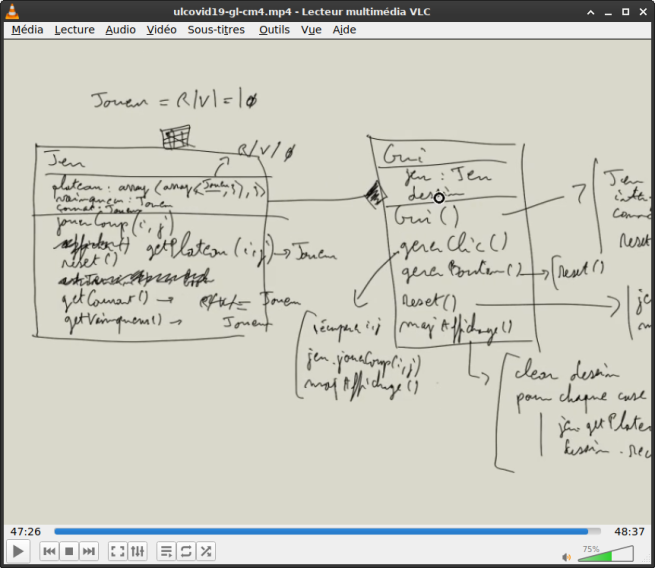 ulcovid19-gl-cm4.mp4 - Lecteur multimédia VLC
Média Lecture Audio Vidéo Sous-titres Outils Vue Aide
Joueur = R|V|=|∅
R/V/∅
Jeu
plateau : array(array(Joueur, j), i)
vainqueur : Joueur
courant : Joueur
jouerCoup(i, j)
getPlateau(i, j) → Joueur
reset()
getCourant() → Joueur
getVainqueur() → Joueur
Gui
jeu : Jeu
dessin
Gui()
gererClic()
gererBouton() → [reset()
Reset()
majAffichage()
récupère i, j
jeu.joueCoup(i, j)
majAffichage()
Jeu
inter
reset
je
m
clear dessin
pour chaque case
jeu.getPlatea
dessin.rec
47:26
48:37
75%